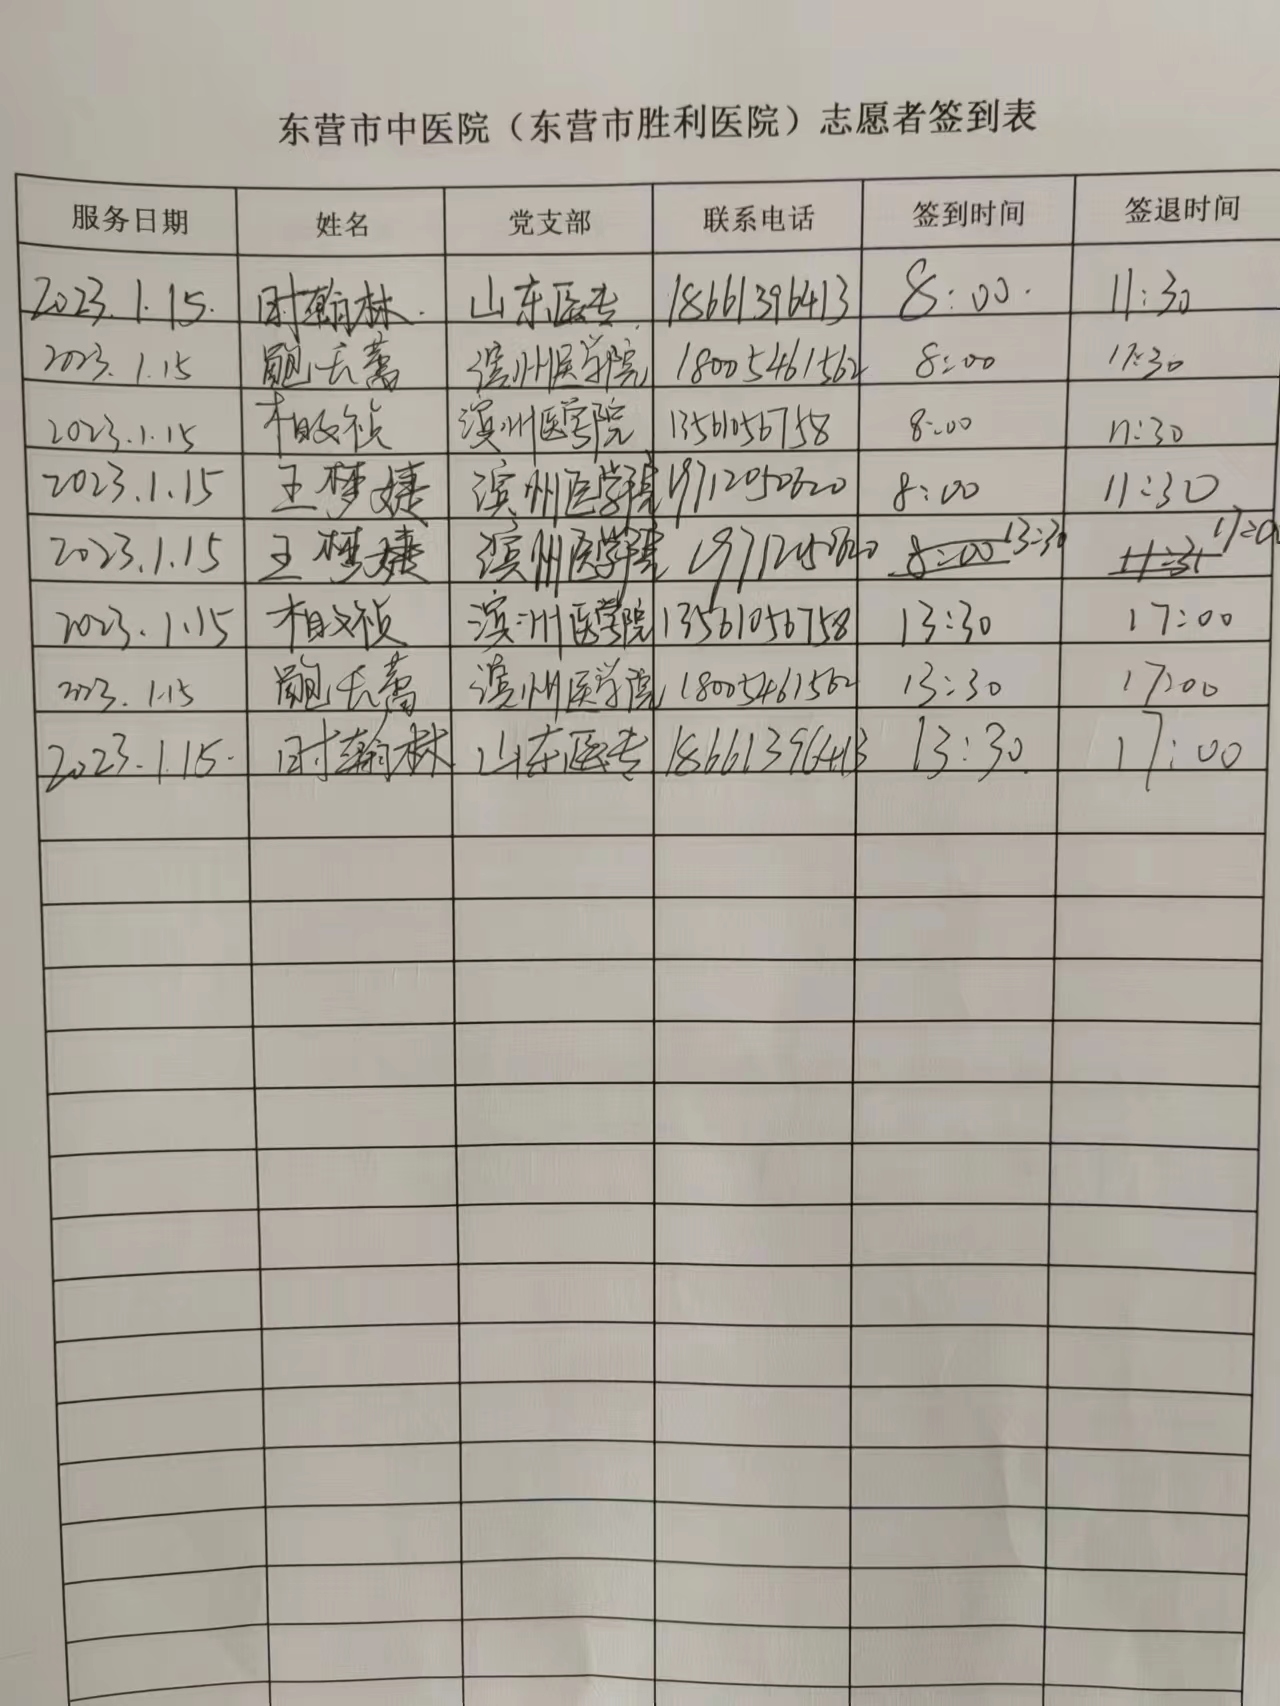 东营市中医院（东营市胜利医院）志愿者签到表
服务日期 姓名 党支部 联系电话 签到时间 签退时间
2023.1.15. 时翰林. 山东医专. 18661396413 8:00. 11:30
2023.1.15 滨州医学院 18005461562 8:00 11:30
2023.1.15 相文祯 滨州医学院 13561056758 8:00 11:30
2023.1.15 王梦婕 滨州医学院 19712050620 8:00 11:30
2023.1.15 王梦婕 滨州医学院 19712050620 8:00 13:30 17:00
2023.1.15 相文祯 滨州医学院 13561056758 13:30 17:00
2023.1.15 滨州医学院 18005461562 13:30 17:00
2023.1.15. 时翰林 山东医专 18661396413 13:30. 17:00